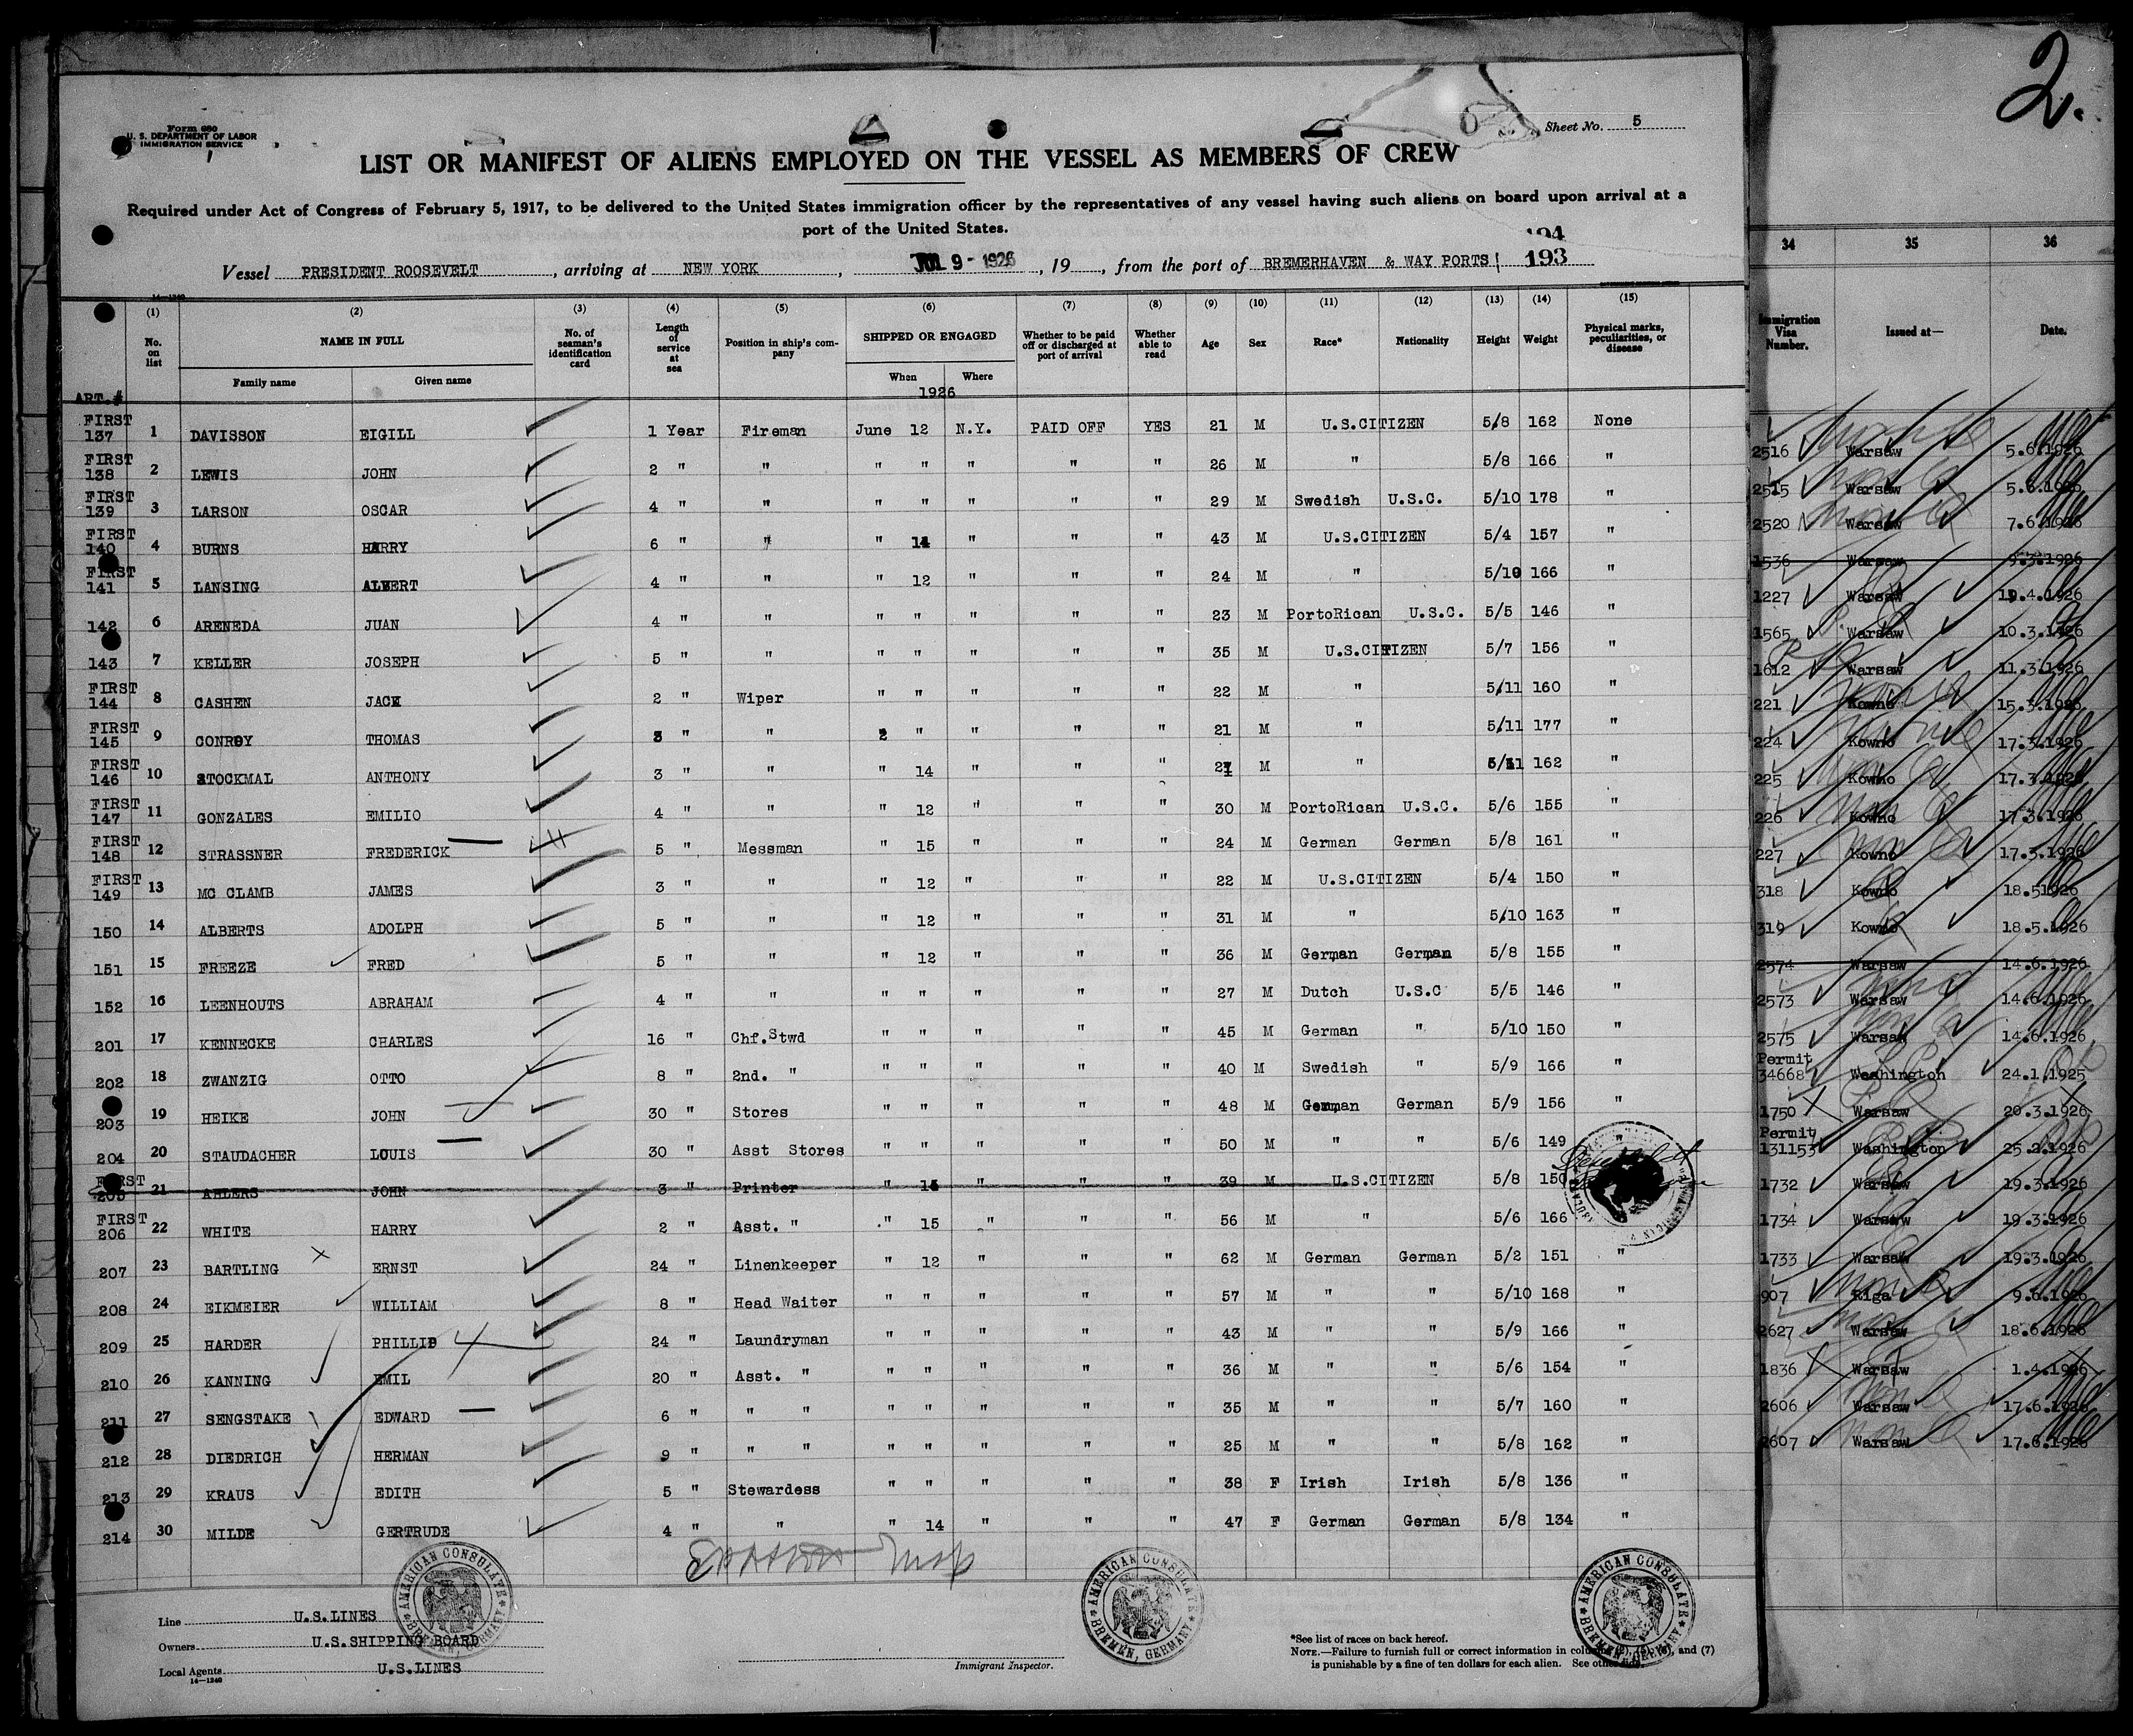 2.
Form 680
U. S. DEPARTMENT OF LABOR
IMMIGRATION SERVICE
Sheet No. 5
LIST OR MANIFEST OF ALIENS EMPLOYED ON THE VESSEL AS MEMBERS OF CREW
Required under Act of Congress of February 5, 1917, to be delivered to the United States immigration officer by the representatives of any vessel having such aliens on board upon arrival at a
port of the United States.
194
Vessel PRESIDENT ROOSEVELT, arriving at NEW YORK, JUL 9 - 1926, 19, from the port of BREMERHAVEN & WAY PORTS 193
(1) (2) (3) (4) (5) (6) (7) (8) (9) (10) (11) (12) (13) (14) (15)
No. on list NAME IN FULL No. of seaman's identification card Length of service at sea Position in ship's company SHIPPED OR ENGAGED Whether to be paid off or discharged at port of arrival Whether able to read Age Sex Race* Nationality Height Weight Physical marks, peculiarities, or disease
Family name Given name When Where
ART.# 1926
FIRST 137 1 DAVISSON EIGILL 1 Year Fireman June 12 N.Y. PAID OFF YES 21 M U.S.CITIZEN 5/8 162 None
FIRST 138 2 LEWIS JOHN 2 " " " " " " " 26 M " 5/8 166 "
FIRST 139 3 LARSON OSCAR 4 " " " " " " " 29 M Swedish U.S.C. 5/10 178 "
FIRST 140 4 BURNS HARRY 6 " " " 14 " " " 43 M U.S.CITIZEN 5/4 157 "
FIRST 141 5 LANSING ALBERT 4 " " " 12 " " " 24 M " 5/10 166 "
142 6 ARENEDA JUAN 4 " " " " " " " 23 M PortoRican U.S.C. 5/5 146 "
143 7 KELLER JOSEPH 5 " " " " " " " 35 M U.S.CITIZEN 5/7 156 "
FIRST 144 8 CASHEN JACK 2 " Wiper " " " " " 22 M " 5/11 160 "
FIRST 145 9 CONROY THOMAS 3 " " 2 " " " " 21 M " 5/11 177 "
FIRST 146 10 STOCKMAL ANTHONY 3 " " " 14 " " " M " 5/11 162 "
FIRST 147 11 GONZALES EMILIO 4 " " " 12 " " " 30 M PortoRican U.S.C. 5/6 155 "
FIRST 148 12 STRASSNER FREDERICK 5 " Messman " 15 " " " 24 M German German 5/8 161 "
FIRST 149 13 MC CLAMB JAMES 3 " " " 12 " " " 22 M U.S.CITIZEN 5/4 150 "
150 14 ALBERTS ADOLPH 5 " " " 12 " " " 31 M " 5/10 163 "
151 15 FREEZE FRED 5 " " " 12 " " " 36 M German German 5/8 155 "
152 16 LEENHOUTS ABRAHAM 4 " " " " " " " 27 M Dutch U.S.C 5/5 146 "
201 17 KENNECKE CHARLES 16 " Chf.Stwd " " " " " 45 M German " 5/10 150 "
202 18 ZWANZIG OTTO 8 " 2nd. " " " " " " 40 M Swedish " 5/9 166 "
203 19 HEIKE JOHN 30 " Stores " " " " " 48 M German German 5/9 156 "
204 20 STAUDACHER LOUIS 30 " Asst Stores " " " " " 50 M " " 5/6 149 "
FIRST 205 21 AHLERS JOHN 3 " Printer " 15 " " " 39 M U.S.CITIZEN 5/8 150
FIRST 206 22 WHITE HARRY 2 " Asst. " " 15 " " " 56 M " 5/6 166
207 23 BARTLING ERNST 24 " Linenkeeper " 12 " " " 62 M German German 5/2 151 "
208 24 EIKMEIER WILLIAM 8 " Head Waiter " " " " " 57 M " " 5/10 168 "
209 25 HARDER PHILLIP 24 " Laundryman " " " " " 43 M " " 5/9 166 "
210 26 KANNING EMIL 20 " Asst. " " " " " " 36 M " " 5/6 154 "
211 27 SENGSTAKE EDWARD 6 " " " " " " " " 35 M " " 5/7 160 "
212 28 DIEDRICH HERMAN 9 " " " " " " " " 25 M " " 5/8 162 "
213 29 KRAUS EDITH 5 " Stewardess " " " " " 38 F Irish Irish 5/8 136 "
214 30 MILDE GERTRUDE 4 " " " 14 " " " 47 F German German 5/8 134 "
AMERICAN CONSULATE BREMEN, GERMANY
AMERICAN CONSULATE BREMEN, GERMANY
AMERICAN CONSULATE BREMEN, GERMANY
Line U.S.LINES
Owners U.S.SHIPPING BOARD
Local Agents U.S.LINES
14—1240
Immigrant Inspector.
*See list of races on back hereof.
NOTE.—Failure to furnish full or correct information in columns (5), (6), and (7)
is punishable by a fine of ten dollars for each alien. See other side.
34 35 36
Immigration Visa Number. Issued at— Date.
2516 Warsaw 5.6.1926
2515 Warsaw 5.6.1926
2520 Warsaw 7.6.1926
1536 Warsaw 9.3.1926
1227 Warsaw 19.4.1926
1565 Warsaw 10.3.1926
1612 Warsaw 11.3.1926
221 Kowno 15.3.1926
224 Kowno 17.3.1926
225 Kowno 17.3.1926
226 Kowno 17.3.1926
227 Kowno 17.3.1926
318 Kowno 18.51926
319 Kowno 18.5.1926
2574 Warsaw 14.6.1926
2573 Warsaw 14.6.1926
2575 Warsaw 14.6.1926
Permit 34668 Washington 24.1.1925
1750 Warsaw 20.3.1926
Permit 131153 Washington 25.2.1926
1732 Warsaw 19.3.1926
1734 Warsaw 19.3.1926
1733 Warsaw 19.3.1926
907 Riga 9.6.1926
2627 Warsaw 18.6.1926
1836 Warsaw 1.4.1926
2606 Warsaw 17.6.1926
2607 Warsaw 17.6.1926